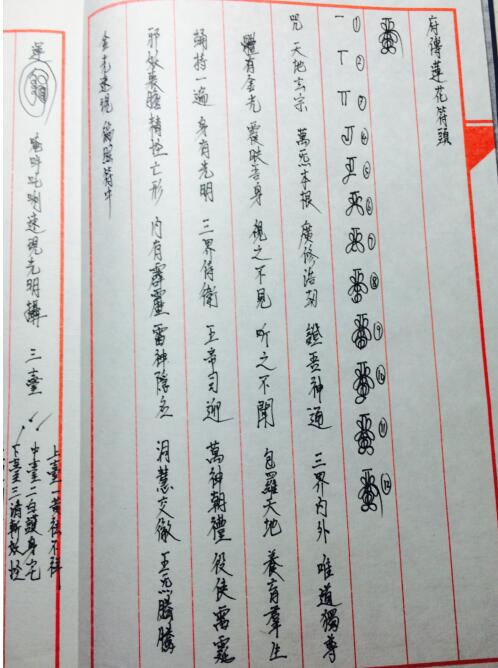 府傳蓮花符頭
① ② ③ ④ ⑤ ⑥ ⑦ ⑧ ⑨ ⑩ ⑪ ⑫
咒 天地玄宗 萬炁本根 廣修浩劫 證吾神通 三界內外 唯道獨尊
體有金光 覆映吾身 視之不見 听之不聞 包羅天地 養育羣生
誦持一遍 身有光明 三界侍衛 五帝司迎 萬神朝禮 役使雷霆
邪妖喪膽 精怪亡形 內有霹靂 雷神隱名 洞慧交徹 五炁騰騰
金光速現 符中
蓮 速現光明 三臺
上臺一黃祛不祥
中臺二白護身宅
下臺三清斬妖怪